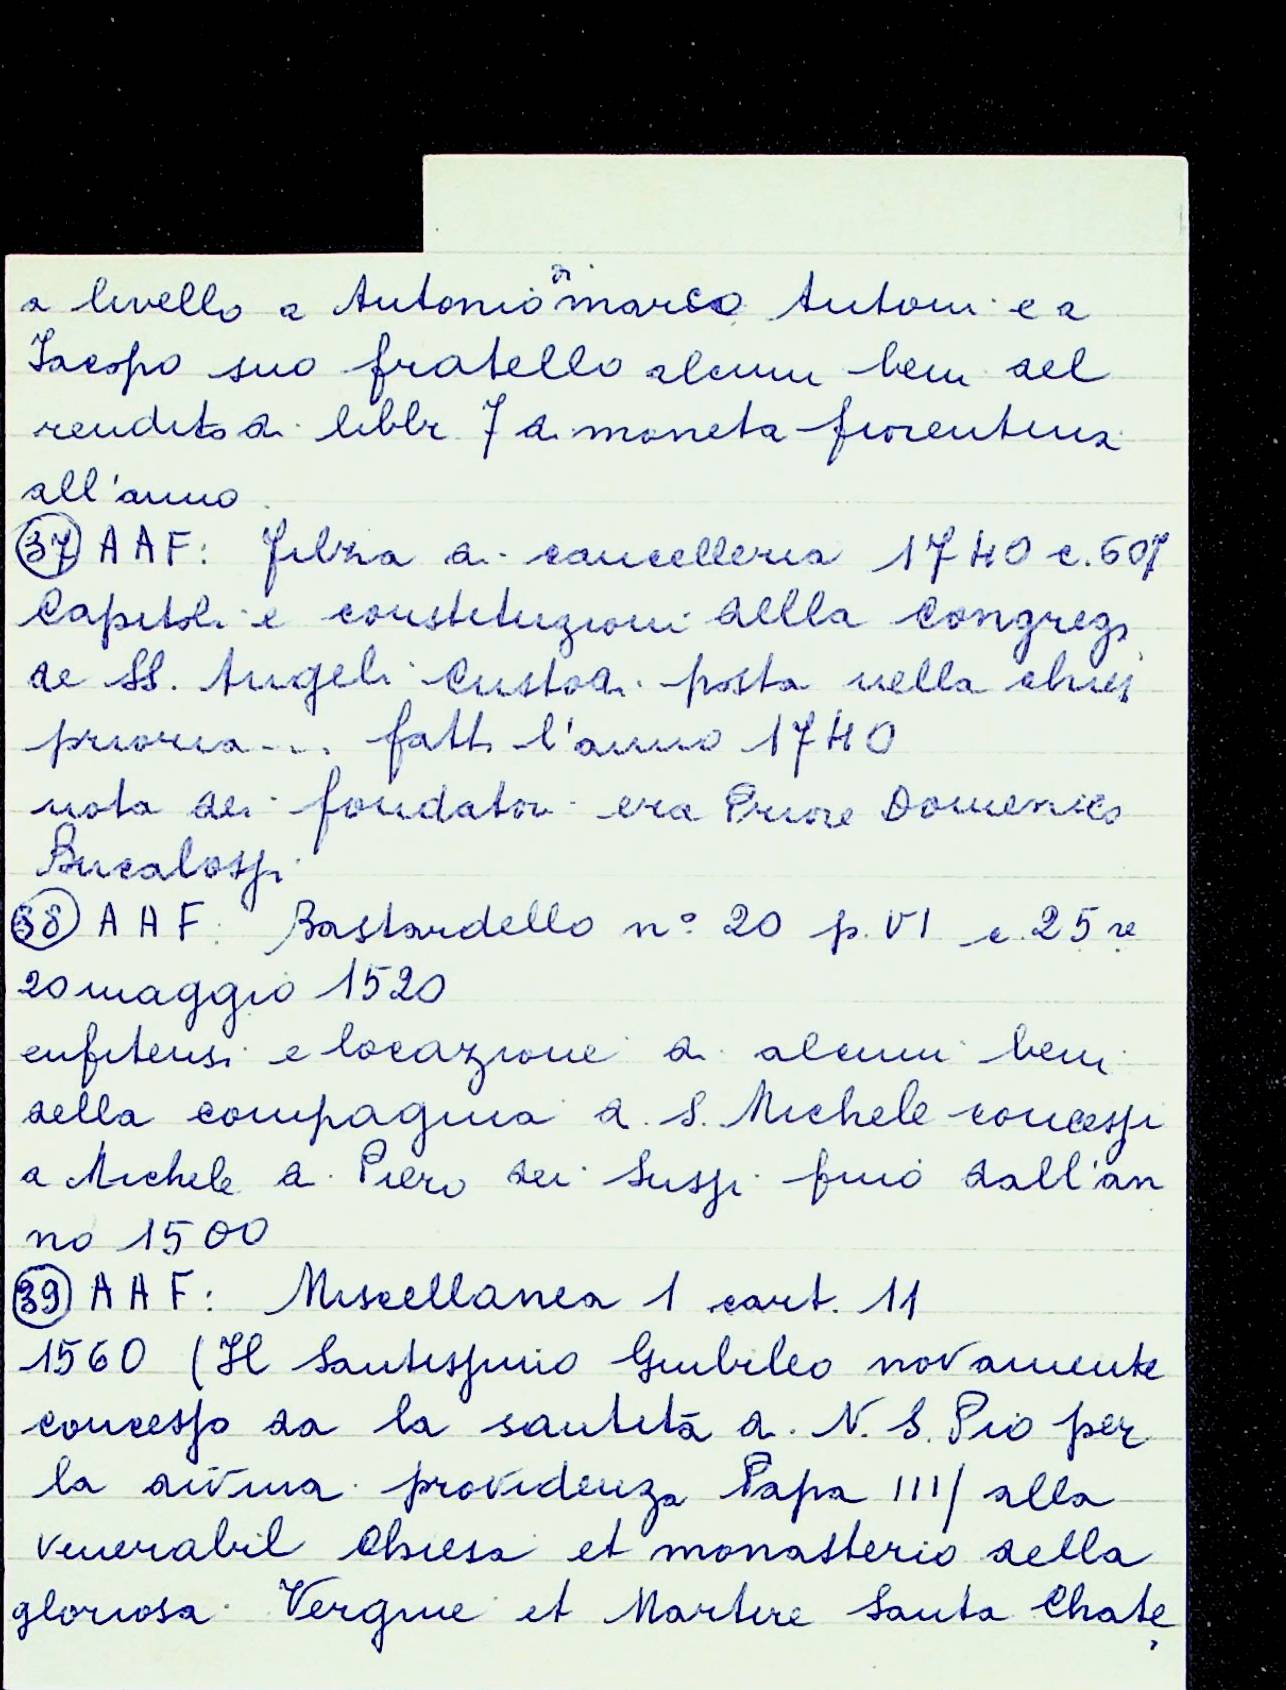 a livello a Antonio di marco Antoni e a
Iacopo suo fratello alcuni beni del
rendito di libbr 7 di moneta fiorentina
all'anno
37 AAF: Filza di cancelleria 1740 c. 607
Capitoli e constituzioni dellla Congreg
de SS. Angeli Custodi posta nella chies
prioria... fatti l'anno 1740
nota dei fondatori era Priore Domenico
Bucalossi
38 AAF: Bastardello n° 20 p. VI c. 25 re
20 maggio 1520
enfiteusi e locazione di alcuni beni
della compagnia di S. Michele concessi
a Michele di Piero dei Sussi fino dall'an
no 1500
39 AAF: Miscellanea 1 cart. 11
1560 (Il Santissimo Giubileo novamente
concesso da la santità di N. S. Pio per
la divina providenza Papa IIII alla
venerabil Chiesa et monasterio della
gloriosa Vergine et Martire Santa Chate